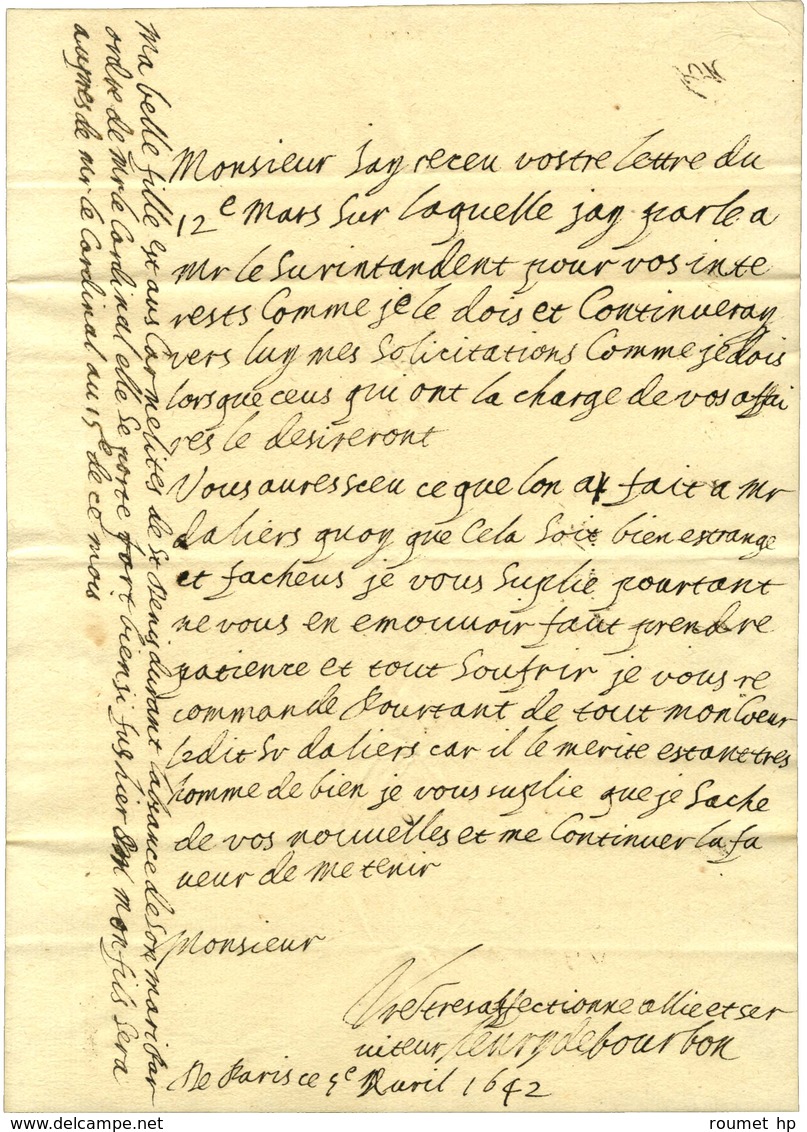 Monsieur jay receu vostre lettre du
12e mars sur laquelle jay parle a
Mr le surintandent pour vos inte
rests Comme je le dois et Continueray
vers luy mes solicitations Comme je dois
lorsque ceus qui ont la charge de vos affai
res le desireront
Vous aures sceu ce que lon a fait a Mr
daliers quoy que Cela soit bien estrange
et facheus je vous suplie pourtant
ne vous en emouvoir faut prendre
patience et tout soufrir je vous re
commande pourtant de tout mon Coeur
ledit Sr daliers car il le merite estant tres
homme de bien je vous suplie que je sache
de vos nouvelles et me Continuer la fa
veur de me tenir
Monsieur
Vre tres affectionne allie et ser
viteur henry de bourbon
De Paris ce 5e Avril 1642
Ma belle fille est aus Carmelites de St Denis durant labsance de son mari par
ordre de Mr le Cardinal elle se porte fort bien si fus hier mon fils sera
aupres de Mr le Cardinal au 15e de ce mois
roumet hp